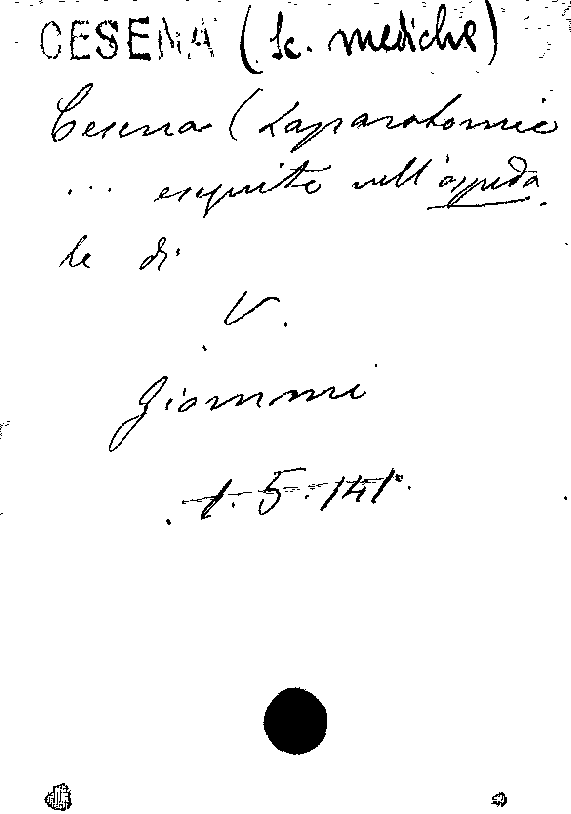 CESENA (Sc. mediche)
Cesena (Laparotomie
... eseguite nell'ospeda
le di
V.
Giommi
1.5.141